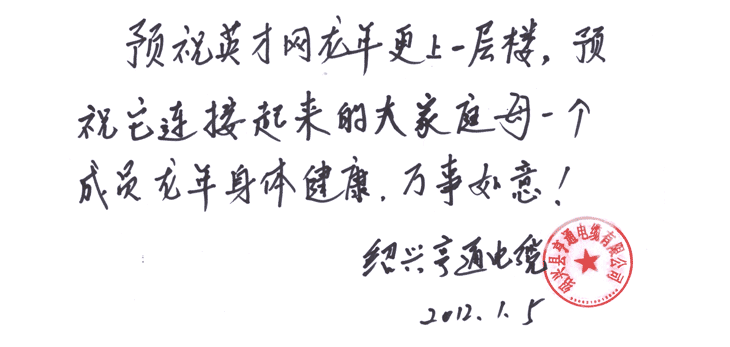 预祝英才网龙年更上一层楼，预
祝它连接起来的大家庭每一个
成员龙年身体健康，万事如意！
绍兴亨通电缆
绍兴县亨通电缆有限公司
2012.1.5